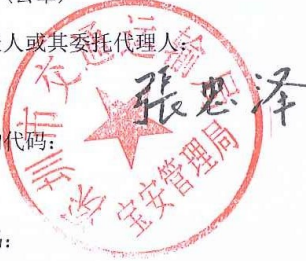 （公章）
人或其委托代理人：
張思泽
代码：
深圳市交通运输局
宝安管理局
：